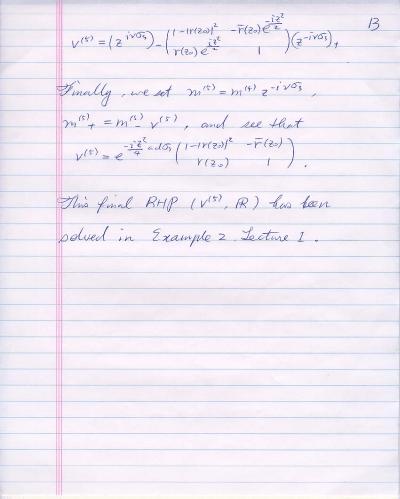 13
v^{(5)} = (z^{iνσ_3})_- \begin{pmatrix} 1-|r(z_0)|^2 & -\bar{r}(z_0) e^{-\frac{iz^2}{2}} \\ r(z_0) e^{\frac{iz^2}{2}} & 1 \end{pmatrix} (z^{-iνσ_3})_+
Finally, we set m^{(5)} = m^{(4)} z^{-iνσ_3},
m^{(5)}_+ = m^{(5)}_- v^{(5)}, and see that
v^{(5)} = e^{-\frac{iz^2}{4} ad σ_3} \begin{pmatrix} 1-|r(z_0)|^2 & -\bar{r}(z_0) \\ r(z_0) & 1 \end{pmatrix}.
This final RHP (v^{(5)}, ℝ) has been
solved in Example 2 Lecture I.